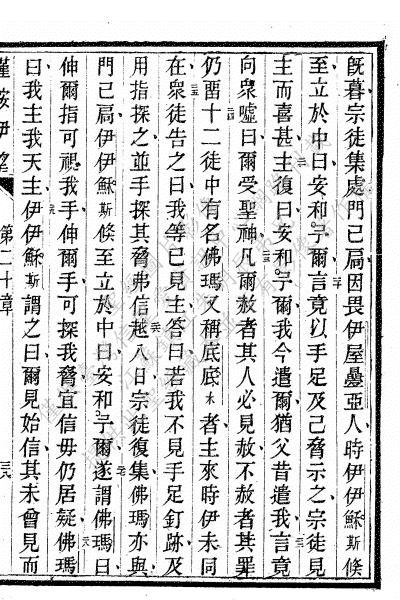 既暮宗徒集處門已扃因畏伊屋疊亞人時伊伊穌斯倐
至立於中曰安和予爾言竟以手足及己脅示之宗徒見
主而喜甚主復曰安和予爾我今遣爾猶父昔遣我言竟
向衆噓曰爾受聖神凡爾赦者其人必見赦不赦者其罪
仍畱十二徒中有名佛瑪又稱底底者主來時伊未同
在衆徒告之曰我等已見主答曰若我不見手足釘跡及
用指探之並手探其脅弗信越八日宗徒復集佛瑪亦與
門已扃伊伊穌斯倐至立於中曰安和予爾遂謂佛瑪曰
伸爾指可視我手伸爾手可探我脅宜信毋仍居疑佛瑪
曰我主我天主伊伊穌斯謂之曰爾見始信其未曾見而
第二十章